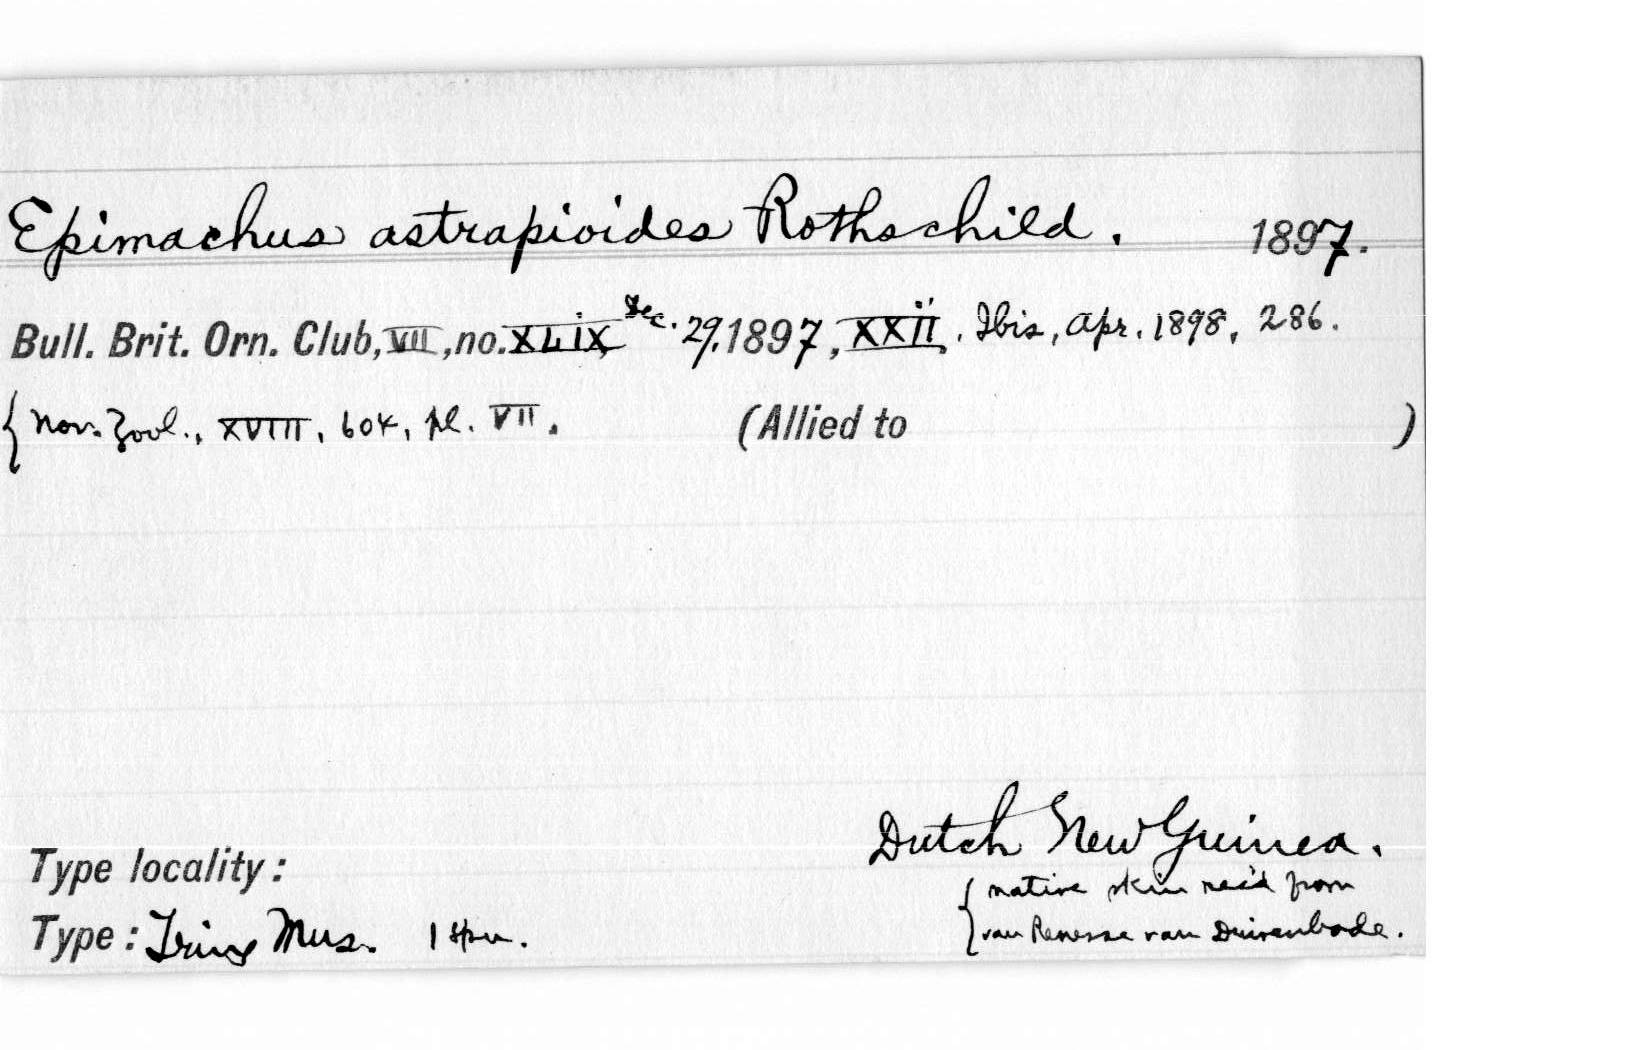 Epimachus astrapioides Rothschild. 1897.
Bull. Brit. Orn. Club, VII, no. XLIX Dec. 29, 1897, XXII. Ibis, Apr. 1898, 286.
{ Nov. Zool., XVIII, 604, pl. VII. (Allied to )
Dutch New Guinea.
Type locality: { native skin rec'd from
Type: Tring Mus. 1 spn. van Renesse van Duivenbode.